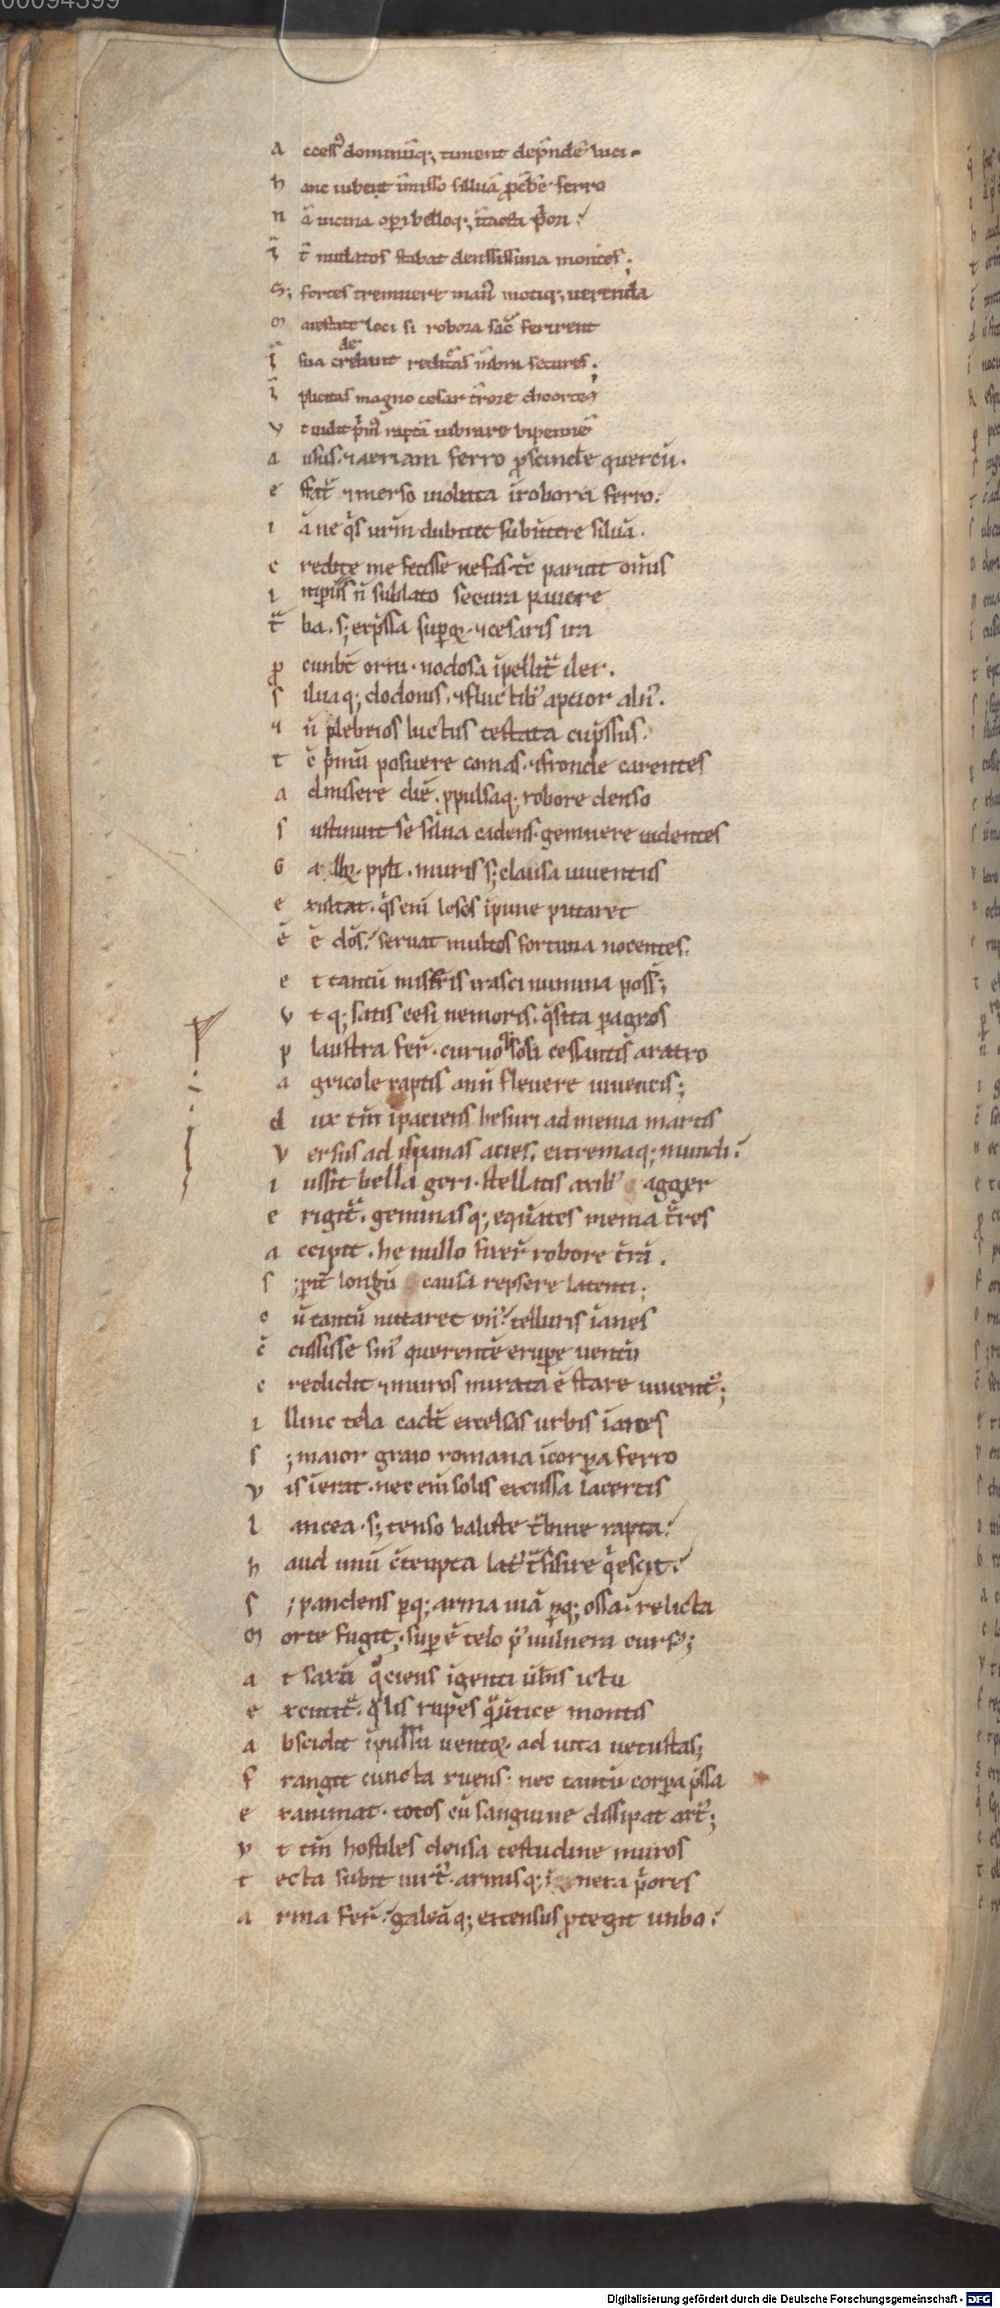 00094399
a ccess᷒ dominũq; timent dep̃nde᷑ luci.
h anc iubent ĩmisso siluã ꝓcũbe᷑ ferro
n ã uicina oꝑi belloq; ĩtacta p̃ori
ĩ t᷑ nudatos stabat densissima montes;
S; fortes tremuere man᷒ motiq; uerenda
m aiestate loci si robora sac᷑ ferirent
ĩ sua credebant reditᷣas mẽbra secures;
ĩ plicitas magno cesar t᷑rore choortes
v t uidit p̃m᷒ raptã uibrare bipennẽ
a usus. ⁊ aeriam ferro ꝓscinde᷑ quercũ.
e ffatᷣ ⁊ merso uiolata ĩ robora ferro.
i ã ne q̃s ur̃m dubitet subũtere siluã.
c redite me fecisse nefas. tc̃ paruit om̃is
i mperiis ñ sublato secura pauore
t᷑ ba. s; exp̃ssa suꝑoꝝ ⁊ cesaris ira
ꝓ cũbt̃ orni. nodosa ĩpellitᷣ ilex.
s iluaq; dodones. ⁊ fluctib᷒ aptior aln᷒.
⁊ ñ plebeios luctus testata cup̃ssus.
t c̃ p̃mũ posuere comas. ⁊ fronde carentes
a dmisere diẽ. ꝓpulsaq; robore denso
s ustinuit se silua cadens. gemuere uidentes
G alloꝝ. ppl̃i. muris s; clausa iuuentus
e xultat. q̃s eni lesos ĩpune putaret
ẽ ẽ do᷒s. seruat multos fortuna nocentes.
e t tantũ mis᷑ris irasci numina poss̃;
v t q; satis cesi nemoris. q̃sita ꝑ agros
p laustra fer̃. curuo soli cessantis aratro
a gricole raptis annũ fleuere iuuencis;
d ux tm̃ ĩpaciens hesuri ad menia martis
v ersus ad ispanas acies. extremaq; mundi.
i ussit bella geri. stellatis axib᷒ agger
e rigitᷣ. geminasq; equãtes menia t᷑res
a ccipit. he nullo fixer̃ robore t᷑rã.
s ; ꝑ it᷑ longũ causa repsere latenti;
c ũ tantũ nutaret on᷒. telluris ĩanes
c̃ cussisse sin᷒ querentẽ erũpe᷑ uentũ
c redidit ⁊ muros mirata ẽ stare iuuent᷒;
i llinc tela cadt̃ excelsas urbis ĩ arces
s ; maior graio romana ĩ corꝑa ferro
v is ĩerat. nec eni solis excussa lacertis
l ancea. s; tenso baliste t᷑bine rapta.
h aud unũ c̃tempta lat᷒ t᷑nsisse q̃escit.
s ; pandens ꝑq; arma uiã ꝑq; ossa. relicta
M orte fugit; suꝑ ẽ telo p᷒ uulnera curs᷒;
a t saxũ q°ciens ĩgenti ũb̃is ictu
e xcutitᷣ. q̃lis rupes q̃ ũtice montis
a bscidit ĩpulsu uentoꝝ. ad iuta uetustas;
f rangit cuncta ruens. nec tantũ corꝑa p̃ssa
e xanimat. totos cũ sanguine dissipat art᷒;
v t tm̃ hostiles densa testudine muros
t ecta subit uirt᷒. armisq; nexa p̃ores
a rma fer̃. galeãq; extensus ꝓtegit umbo.
Digitalisierung gefördert durch die Deutsche Forschungsgemeinschaft - DFG